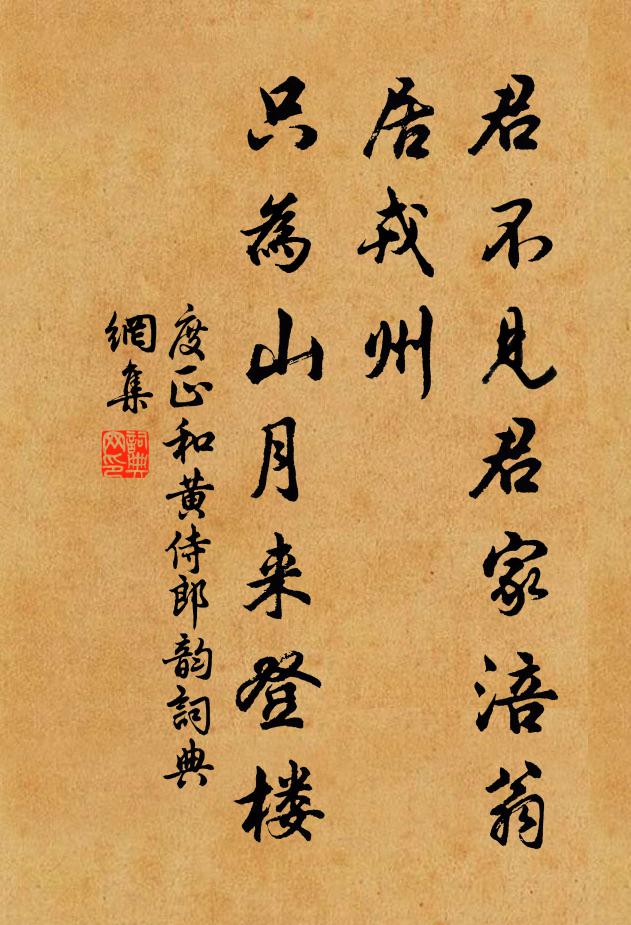 君不见君家涪翁
居戎州
只為山月来登楼
度正和黄侍郎韵詞典
網集
詞典
网印